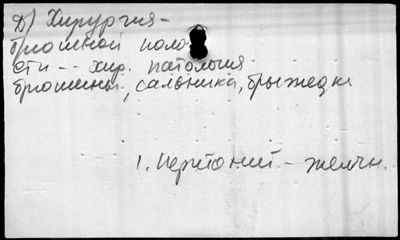 Д) Хирургия -
брюшной поло
сти -- хир. патология
брюшины, сальника, брыжейки
1. Перитонит - желчн.